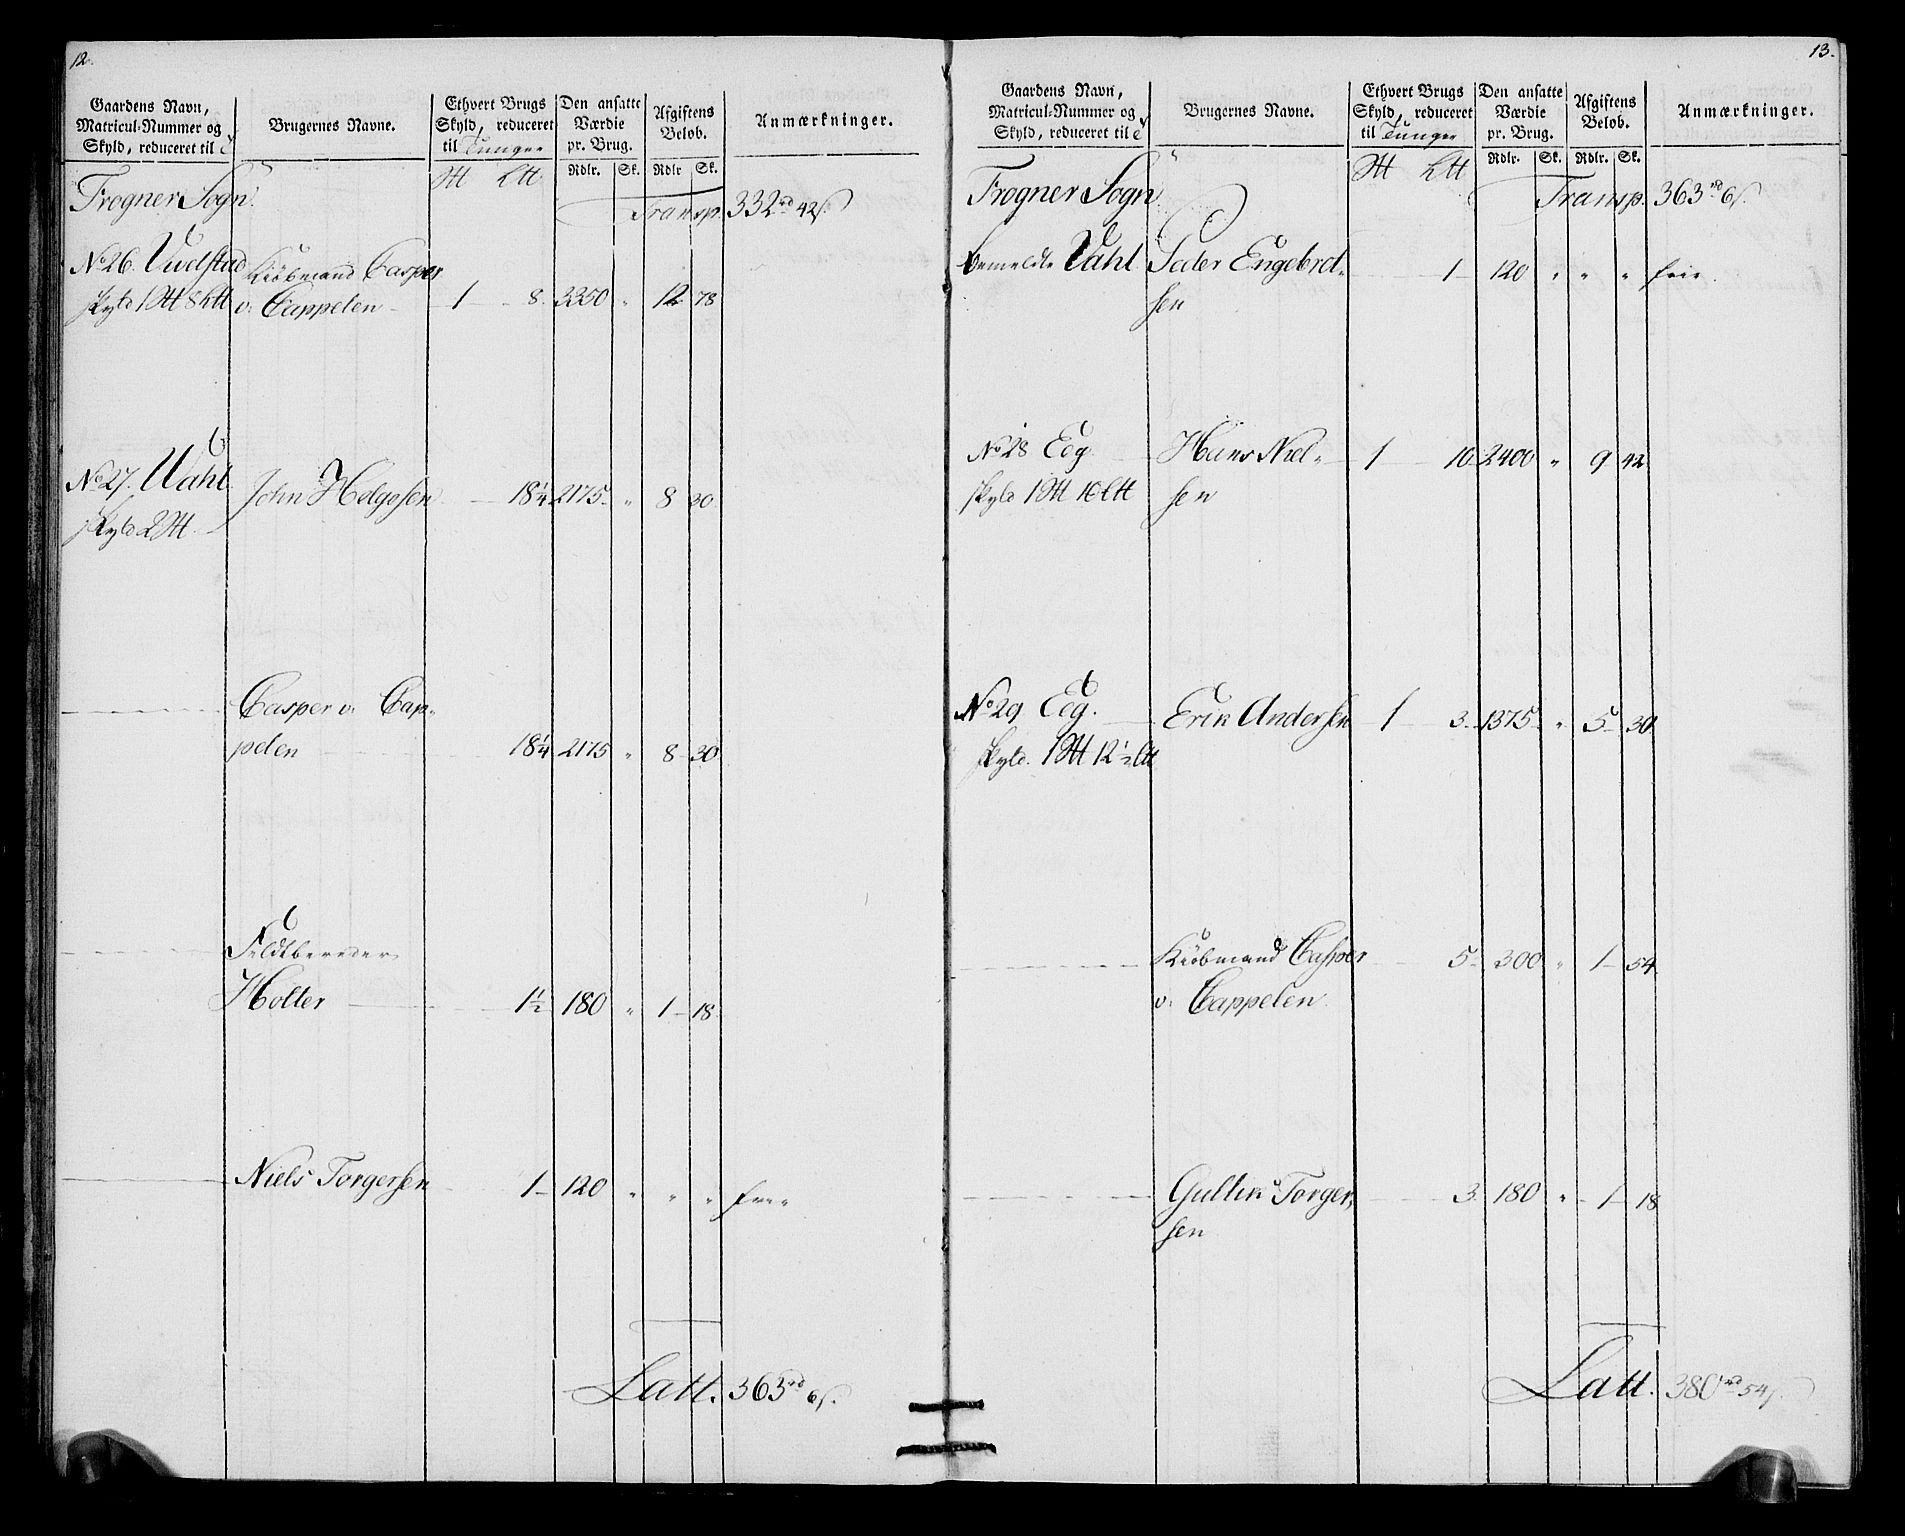 12.
Gaardens Navn, Matricul-Nummer og Skyld, reduceret til
Brugernes Navne.
Ethvert Brugs Skyld, reduceret til Tunger
Den ansatte Værdie pr. Brug.
Afgiftens Beløb.
Anmærkninger.
Rdlr. Sk. Rdlr Sk.
Frogner Sogn Transp. 332 rd 42 s
No 26. Kiøbmand Casper
skyld 1 8 v: Cappelen 1 8. 3350 " 12 78
No 27. Vahl John Helgesen 18 1/4 2175 " 8 30
skyld 2
Casper v: Cap-
pelen 18 1/4 2175 " 8 30
Feldtbereder
Holter 1 1/2 180 " 1 18
Niels Torgersen 1 120 " " " frie
Latt. 363 rd 6 s.
13.
Gaardens Navn, Matricul-Nummer og Skyld, reduceret til
Brugernes Navne.
Ethvert Brugs Skyld, reduceret til Tunger
Den ansatte Værdie pr. Brug.
Afgiftens Beløb.
Anmærkninger.
Rdlr. Sk. Rdlr. Sk.
Frogner Sogn Transp. 363 rd 6 s.
bemeldte Vahl Peder Engebret- 1 120 " " " frie
sen
No 28 Eeg Hans Niel- 1 10 2400 " 9 42
skyld 1 10 sen
No 29 Eeg. Erik Andersen 1 3 1375 " 5 30
skyld. 1 12 1/2
Kiøbmand Casper 5 300 " 1 54
v: Cappelen
Gullik Torger- 3 180 " 1 18
sen
Latt. 380 rd 54 s.